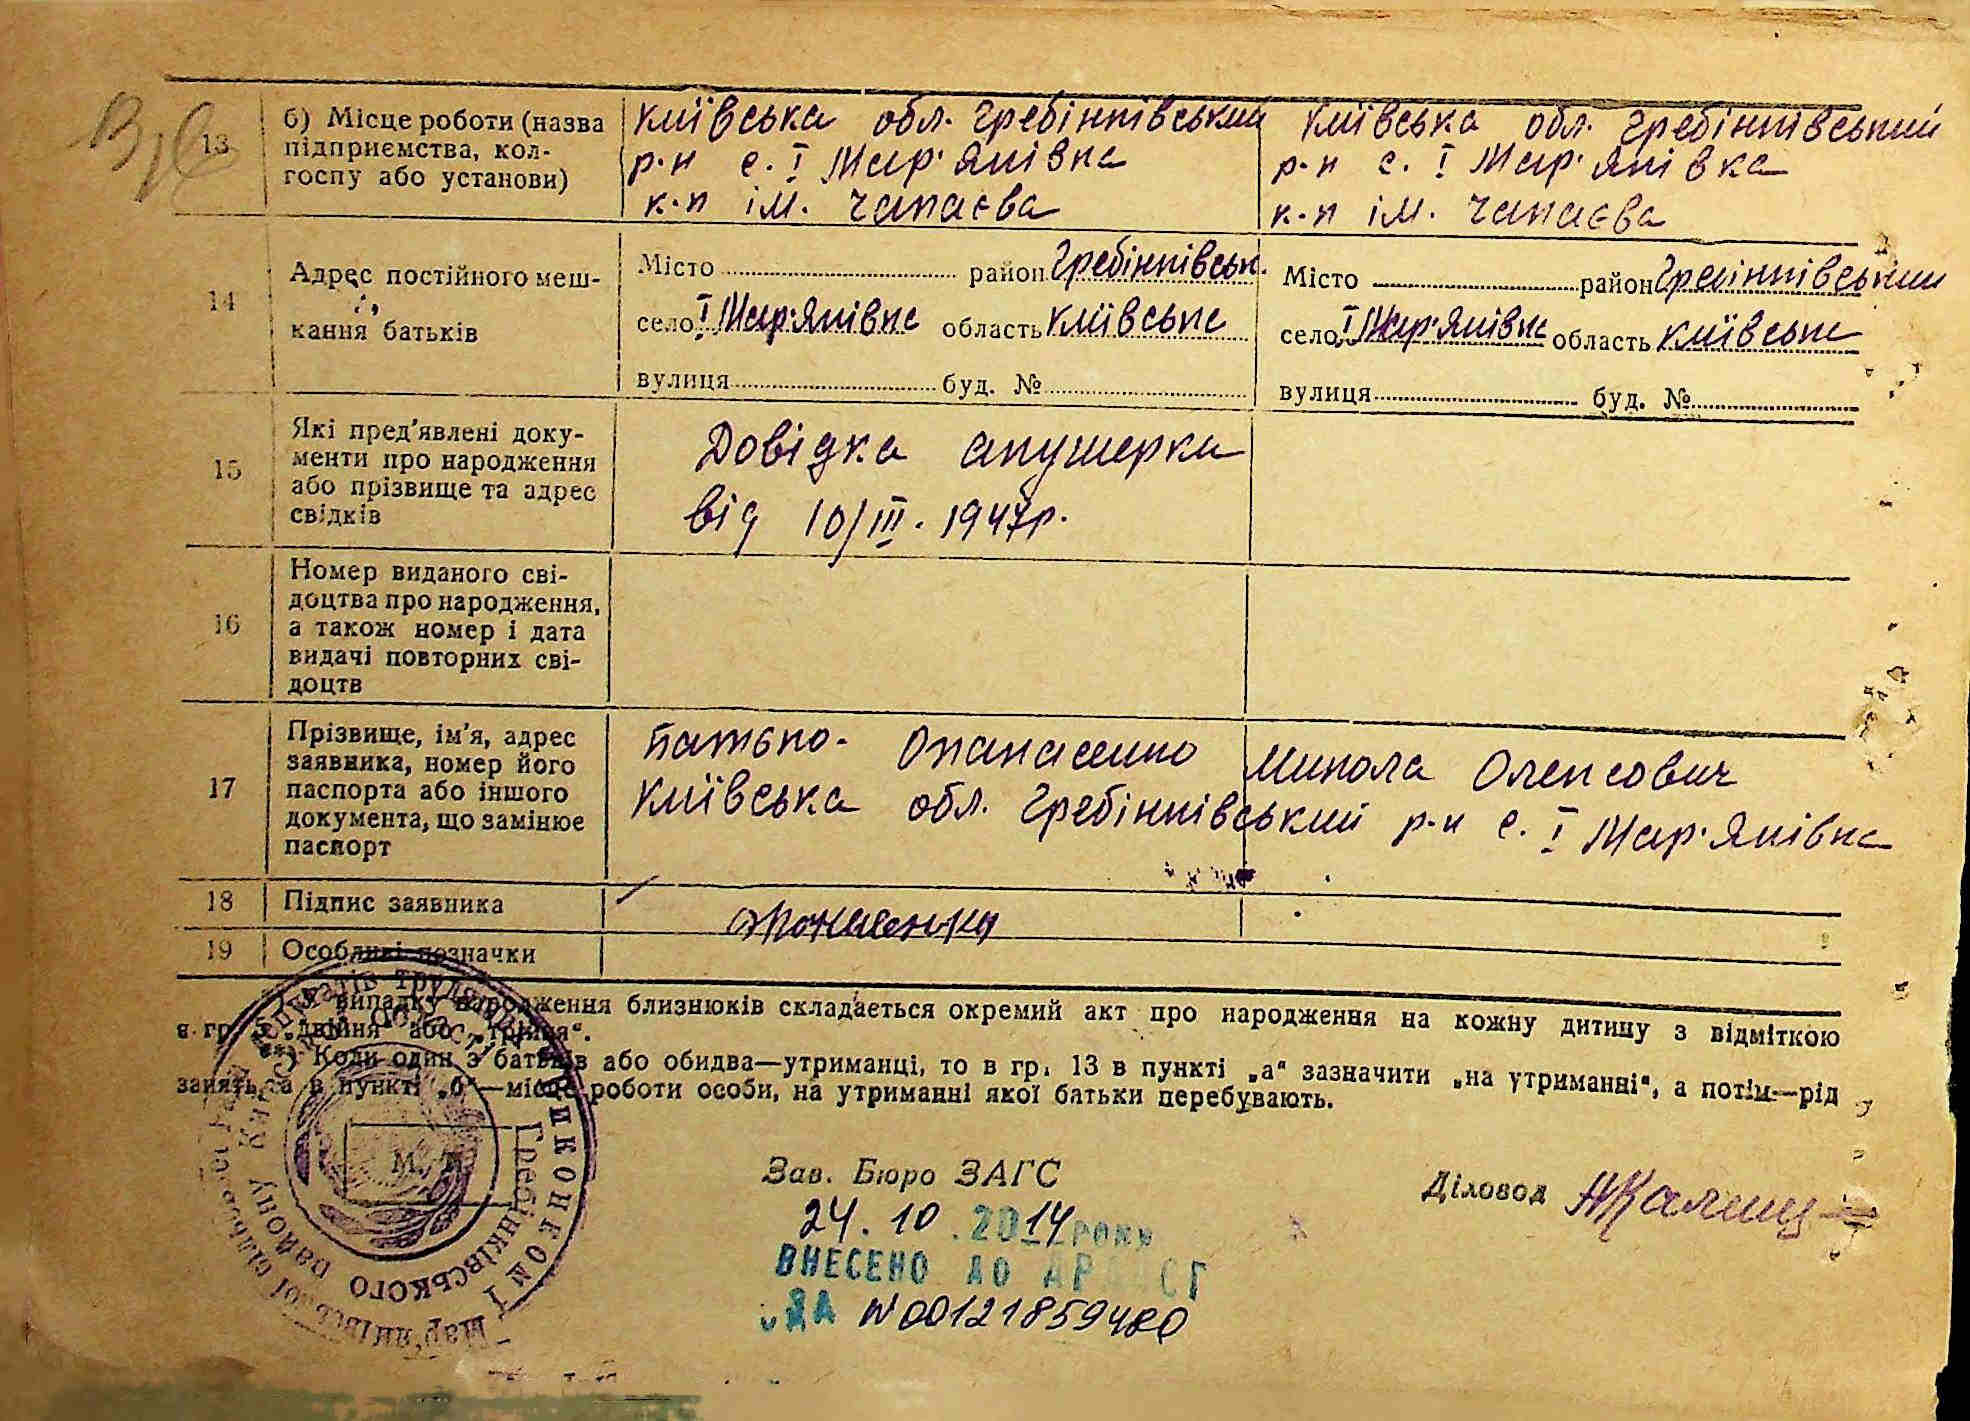 13
б) Місце роботи (назва
підприємства, кол-
госпу або установи)
Київська обл. Гребінківський
р-н с. І Мар'янівка
к-п ім. Чапаєва
Київська обл. Гребінківський
р-н с. І Мар'янівка
к-п ім. Чапаєва
14
Адрес постійного меш-
кання батьків
Місто район Гребінківськ.
село І Мар'янівка область Київська
вулиця буд. №
Місто район Гребінківський
село І Мар'янівка область Київська
вулиця буд. №
15
Які пред'явлені доку-
менти про народження
або прізвище та адрес
свідків
Довідка акушерки
від 10/III. 1947р.
16
Номер виданого сві-
доцтва про народження,
а також номер і дата
видачі повторних сві-
доцтв
17
Прізвище, ім'я, адрес
заявника, номер його
паспорта або іншого
документа, що замінює
паспорт
батько- Опанасенко Микола Олексович
Київська обл. Гребінківський р-н с. І Мар'янівка
18 Підпис заявника
19 Особливі позначки
*) У випадку народження близнюків складається окремий акт про народження на кожну дитину з відміткою
в гр. 5 „двійня“ або „трійня“.
**) Коли один з батьків або обидва—утриманці, то в гр. 13 в пункті „а“ зазначити „на утриманні“, а потім—рід
занять, а в пункті „б“—місце роботи особи, на утриманні якої батьки перебувають.
М.
ВИКОНКОМ
Мар'янівської сільської Ради депутатів трудящих
Гребінківського району Київської області
Зав. Бюро ЗАГС
Діловод
24.10.2014 РОКУ
ВНЕСЕНО ДО ДРАЦСГ
ЗА №00121859480